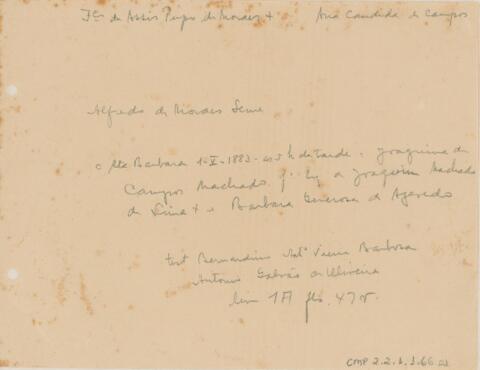 Fco de Assis Pupo de Moraes + Ana Candida de Campos
Alfredo de Moraes Leme
c Sta Barbara 1-V-1883 - as 5 h da tarde - Joaquina de
Campos Machado fª leg de Joaquim Machado
de Lima + e Barbara Generosa de Azevedo
test Bernardino Antº Vieira Barbosa
Antonio Galvão de Oliveira
livro 1A fls. 47 v.
CMP 2.2.1.1.66